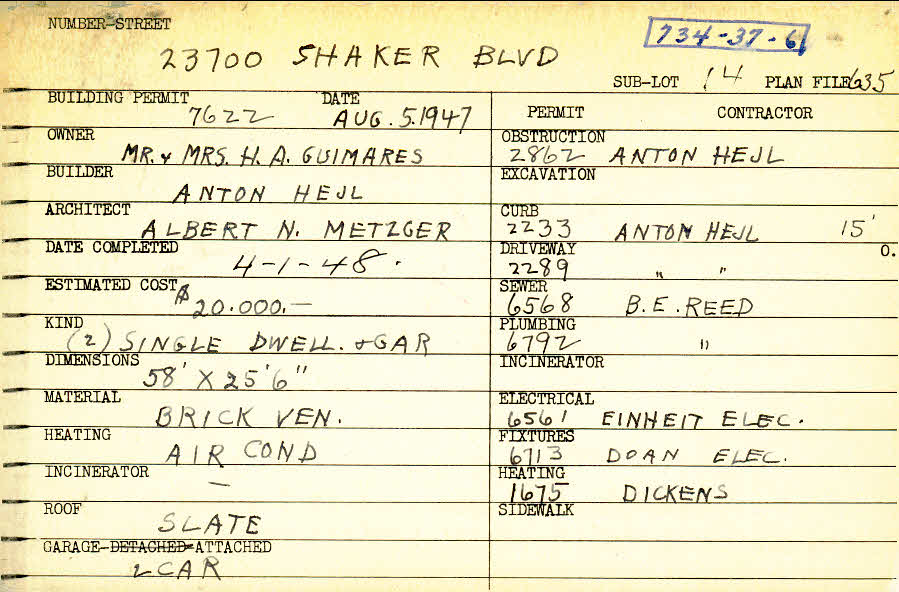 NUMBER-STREET
734-37-6
23700 SHAKER BLVD
SUB-LOT 14 PLAN FILE 635
BUILDING PERMIT DATE
7622 AUG. 5. 1947
OWNER
MR. & MRS. H. A. GUIMARES
BUILDER
ANTON HEJL
ARCHITECT
ALBERT N. METZGER
DATE COMPLETED
4-1-48.
ESTIMATED COST
$20.000.—
KIND
(2) SINGLE DWELL. & GAR
DIMENSIONS
58' X 25'6"
MATERIAL
BRICK VEN.
HEATING
AIR COND
INCINERATOR
—
ROOF
SLATE
GARAGE-DETACHED-ATTACHED
2 CAR
PERMIT CONTRACTOR
OBSTRUCTION
2862 ANTON HEJL
EXCAVATION
CURB
2233 ANTON HEJL 15'
DRIVEWAY O.
2289 " "
SEWER
6568 B.E. REED
PLUMBING
6792 "
INCINERATOR
ELECTRICAL
6561 EINHEIT ELEC.
FIXTURES
6713 DOAN ELEC.
HEATING
1675 DICKENS
SIDEWALK